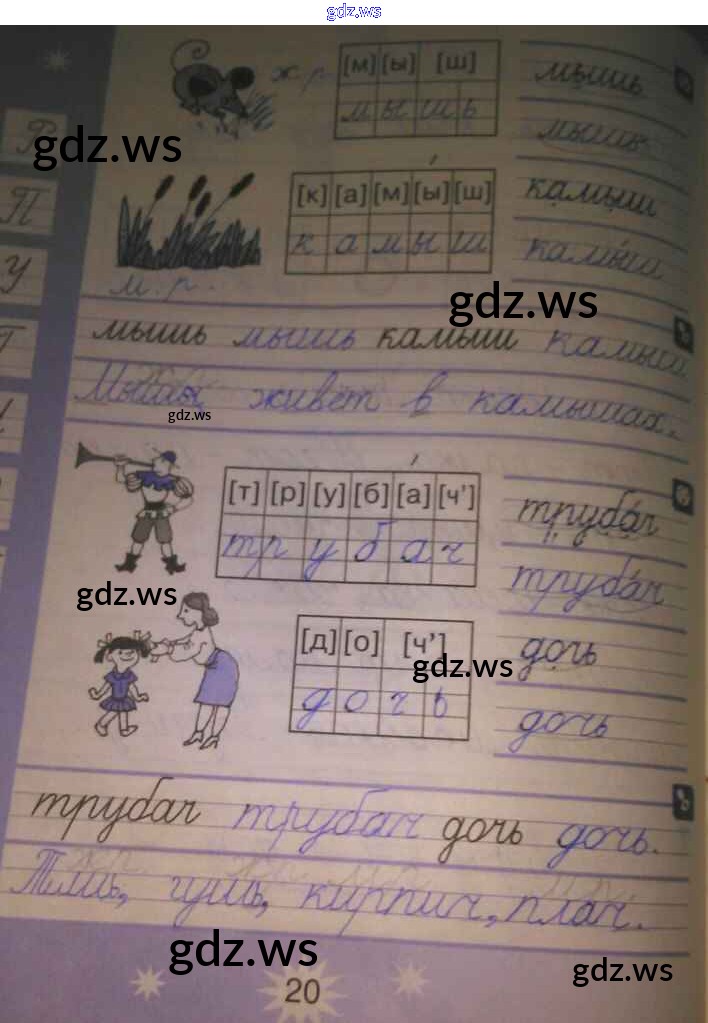 gdz.ws
ж. р.
[м] [ы] [ш]
мышь
мышь
мышь
gdz.ws
П
У
[к] [а] [м] [ы] [ш]
камыш
камыш
камыш
м. р.
gdz.ws
мышь мышь камыш камыш
живёт в камышах.
gdz.ws
[т] [р] [у] [б] [а] [ч']
трубач
трубач
трубач
gdz.ws
[д] [о] [ч']
дочь
дочь
дочь
gdz.ws
трубач трубач дочь дочь.
кирпич, плач.
gdz.ws
gdz.ws
20